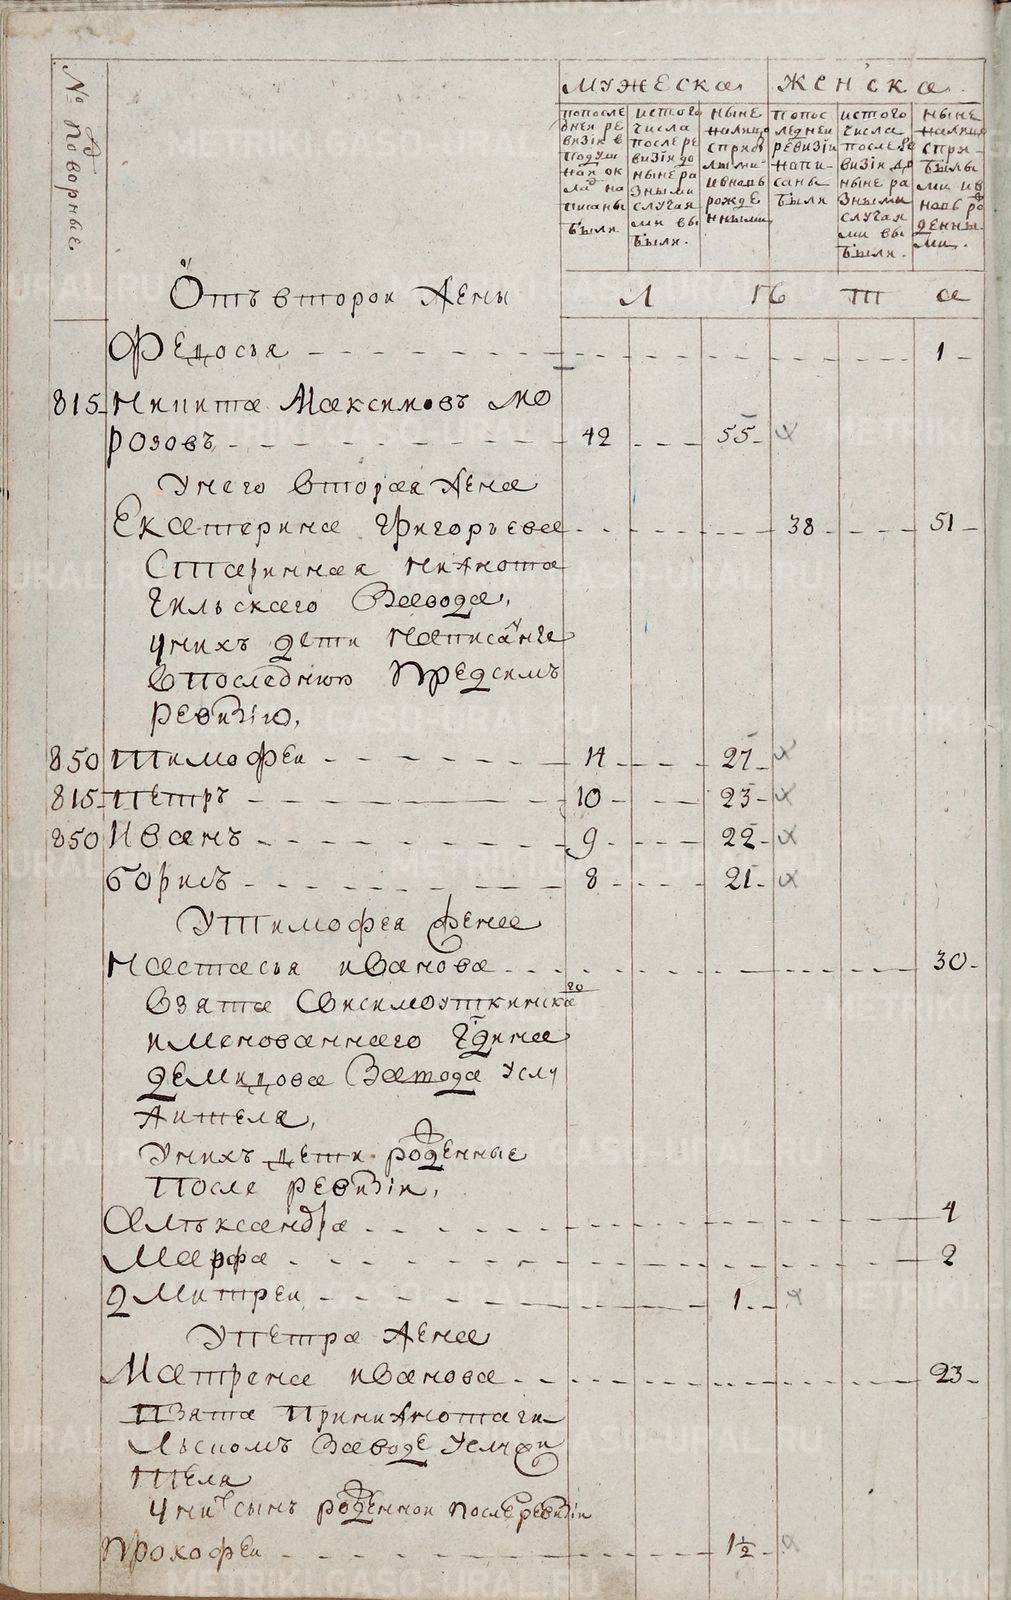 № Подворные
МУЖЕСКА
ЖЕНСКА
попосле
днеи ре
визiи в
подуш
нои ок
лад на
писаны
были
истого
числа
послере
визiи до
ныне ра
зными
случая
ми вы
были.
ныне
налицо
спри
ивновь
рожде
нными
попос
леднеи
ревизiи
напи-
саны
были
истого
числа
после ре
визiи до
ныне ра
зными
случая
ми вы
были.
ныне
налицо
спри-
былы
ми ив
новь ро
жденны
ми.
Отъ второи жены
Л
та
Федосья 1
815 Никита Максимовъ мо
розовъ 42 55
Унего вторая жена
Екатерина Григорьева 38 51
Старинная нижнота
гильскаго Завода,
унихъ дети написанне
впоследнюю предсимъ
ревизiю,
850 Тимофеи 14 27
815 Петръ 10 23
850 Иванъ 9 22
Борисъ 8 21
УТимофея жена
Настасья иванова 30
взята
имянованнаго Гдина
демидова Завода услу
жителя,
Унихъ дети рожденные
После ревизiи,
Алѣксандра 4
Марфа 2
Дмитреи 1
УПетра жена
Матрена иванова 23
Взята Принижнотаги
льскомъ Заводе услужи
теля
уних сынъ рожденнои послеревизiи
Прокофеи 1½
METRIKI.GASO-URAL.RU